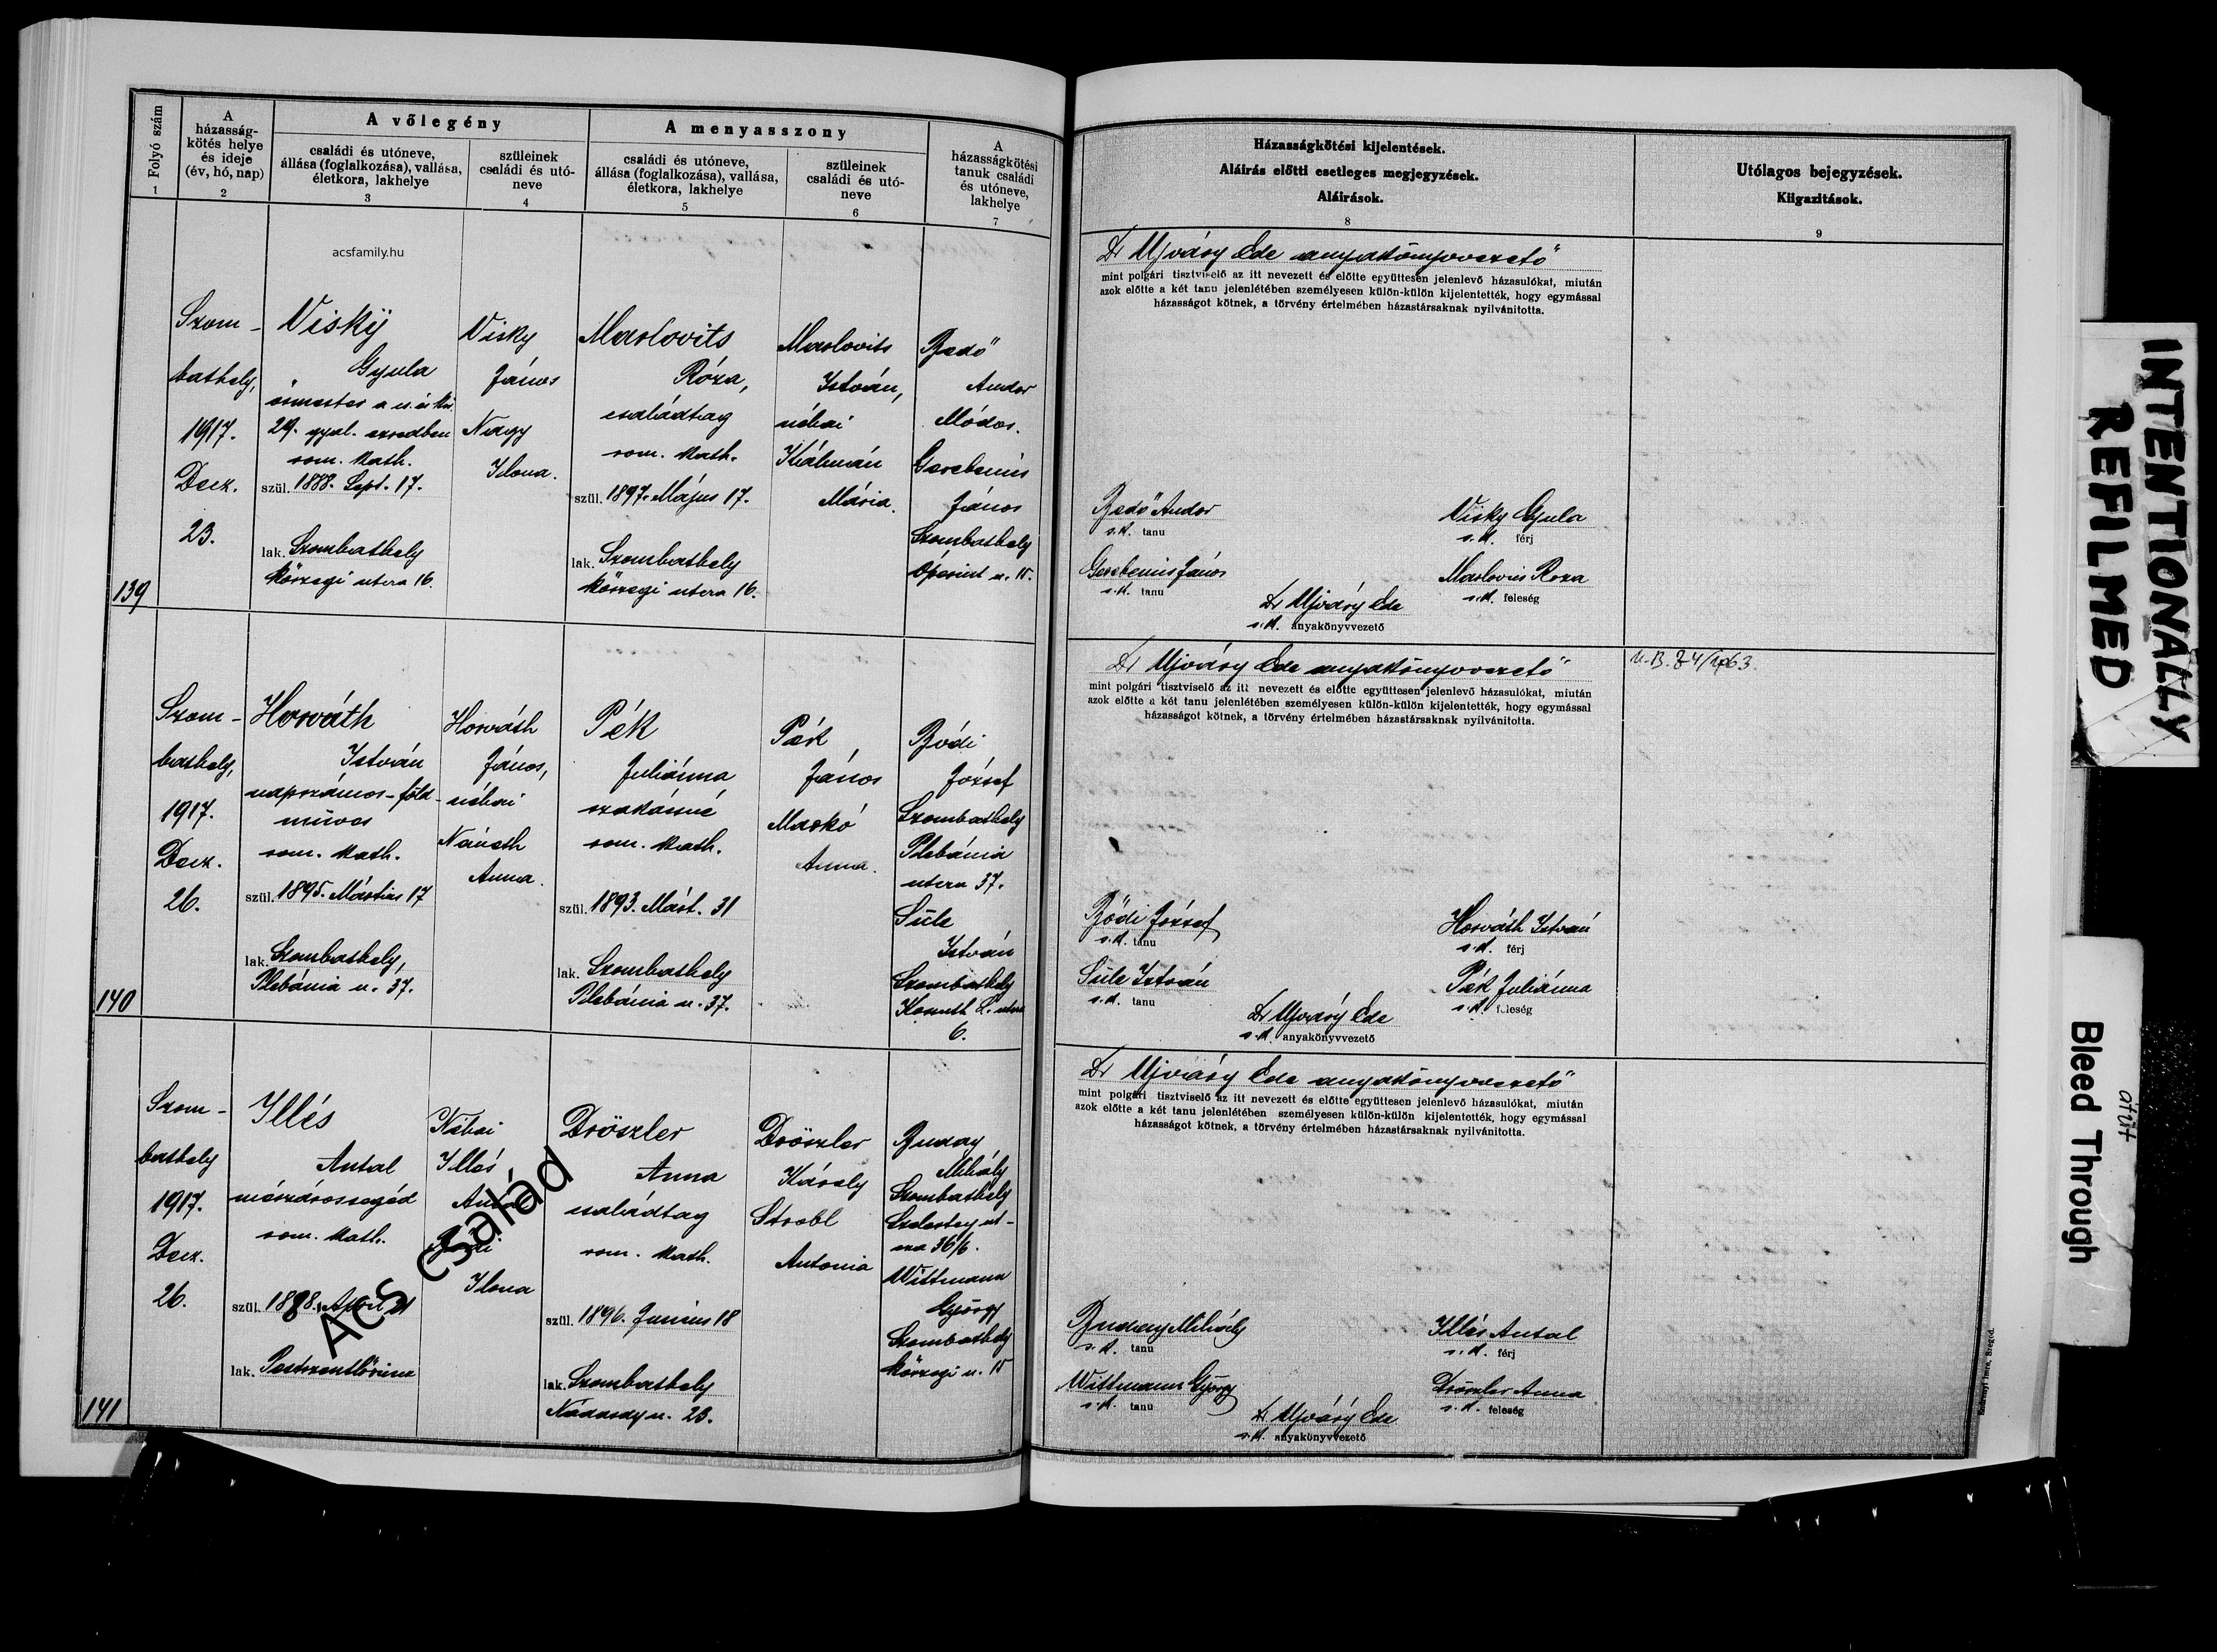 Folyó szám
1
A
házasság-
kötés helye
és ideje
(év, hó, nap)
2
A vőlegény
családi és utóneve,
állása (foglalkozása), vallása,
életkora, lakhelye
3
szüleinek
családi és utó-
neve
4
A menyasszony
családi és utóneve,
állása (foglalkozása), vallása,
életkora, lakhelye
5
szüleinek
családi és utó-
neve
6
A
házasságkötési
tanuk családi
és utóneve,
lakhelye
7
acsfamily.hu
139
Szom-
bathely,
1917.
Decz.
23.
Visky
Gyula
29. gyal. ezredben
rom. kath.
szül. 1888. Sept. 17.
lak. Szombathely
kőszegi utcza 16.
Visky
János
Nagy
Ilona.
Marlovits
Róza,
családtag
rom. kath.
szül. 1897. Május 17.
lak. Szombathely
kőszegi utcza 16.
Marlovits
István,
néhai
Kálmán
Mária.
Bedő
Andor
Módos.
Gerebenis
János
Szombathely
Óperint u. 15.
140
Szom-
bathely,
1917.
Decz.
26.
Horváth
István
napszámos-föld-
műves
rom. kath.
szül. 1895. Mártius 17
lak. Szombathely,
Plébánia u. 37.
Horváth
János,
néhai
Németh
Anna.
Pék
Juliánna
szakácsné
rom. kath.
szül. 1893. Márt. 31
lak. Szombathely
Plébánia u. 37.
Pék
János
Markó
Anna.
Bódi
József
Szombathely
Plébánia
utcza 37.
Süle
István
Szombathely
Kossuth L. utcza
6.
141
Szom-
bathely
1917.
Decz.
26.
Illés
Antal
mészárossegéd
rom. kath.
szül. 1888. April 21
lak. Pestszentlőrincz
Néhai
Illés
Antal
Ilona
Dröszler
Anna
családtag
rom. kath.
szül. 1896. Junius 18
lak. Szombathely
Nádasdy u. 23.
Dröszler
Károly
Strobl
Antonia
Buday
Mihály
Szombathely
Szelestey ut-
cza 36/b.
Wittmann
György
Szombathely
kőszegi u. 15
Acs család
Házasságkötési kijelentések.
Aláirás előtti esetleges megjegyzések.
Aláirások.
8
Utólagos bejegyzések.
Kiigazitások.
9
Dr Ujváry Ede anyakönyvvezető
mint polgári tisztviselő az itt nevezett és előtte együttesen jelenlevő házasulókat, miután
azok előtte a két tanu jelenlétében személyesen külön-külön kijelentették, hogy egymással
házasságot kötnek, a törvény értelmében házastársaknak nyilvánitotta.
Bedő Andor
s.k. tanu
Visky Gyula
s.k. férj
Gerebenis János
s.k. tanu
Marlovics Roza
s.k. feleség
Dr Ujváry Ede
s.k. anyakönyvvezető
Dr Ujváry Ede anyakönyvvezető
mint polgári tisztviselő az itt nevezett és előtte együttesen jelenlevő házasulókat, miután
azok előtte a két tanu jelenlétében személyesen külön-külön kijelentették, hogy egymással
házasságot kötnek, a törvény értelmében házastársaknak nyilvánitotta.
Bódi József
s.k. tanu
Horváth István
s.k. férj
Süle István
s.k. tanu
Pék Juliánna
s.k. feleség
Dr Ujváry Ede
s.k. anyakönyvvezető
Dr Ujváry Ede anyakönyvvezető
mint polgári tisztviselő az itt nevezett és előtte együttesen jelenlevő házasulókat, miután
azok előtte a két tanu jelenlétében személyesen külön-külön kijelentették, hogy egymással
házasságot kötnek, a törvény értelmében házastársaknak nyilvánitotta.
Buday Mihály
s.k. tanu
Illés Antal
s.k. férj
Wittmann György
s.k. tanu
Dröszler Anna
s.k. feleség
Dr Ujváry Ede
s.k. anyakönyvvezető
INTENTIONALLY
REFILMED
átüt
Bleed Through